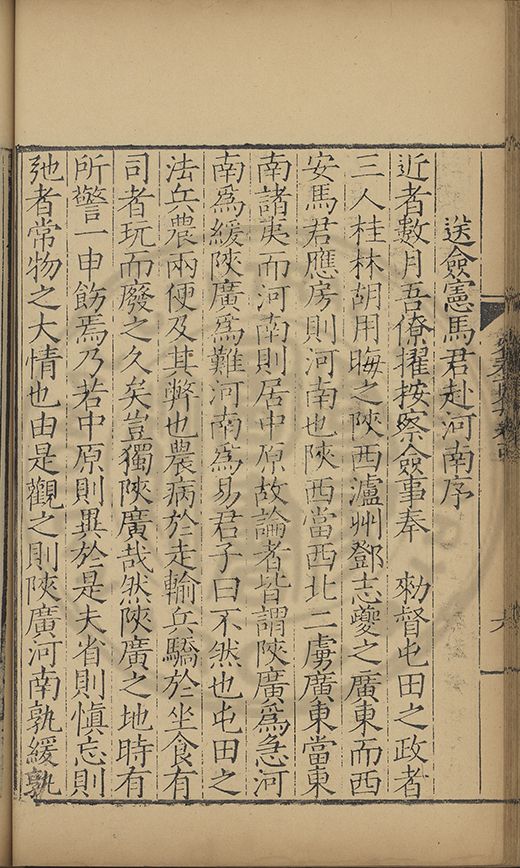 送僉憲馬君赴河南序
近者數月吾僚擢按察僉事奉　勑督屯田之政者
三人桂林胡用晦之陝西瀘州鄧志夔之廣東而西
安馬君應房則河南也陝西當西北二虜廣東當東
南諸夷而河南則居中原故論者皆謂陝廣爲急河
南爲緩陝廣爲難河南爲易君子曰不然也屯田之
法兵農兩便及其弊也農病於走輸兵驕於坐食有
司者玩而廢之久矣豈獨陝廣哉然陝廣之地時有
所警一申飭焉乃若中原則異於是夫省則慎忘則
弛者常物之大情也由是觀之則陝廣河南孰緩孰